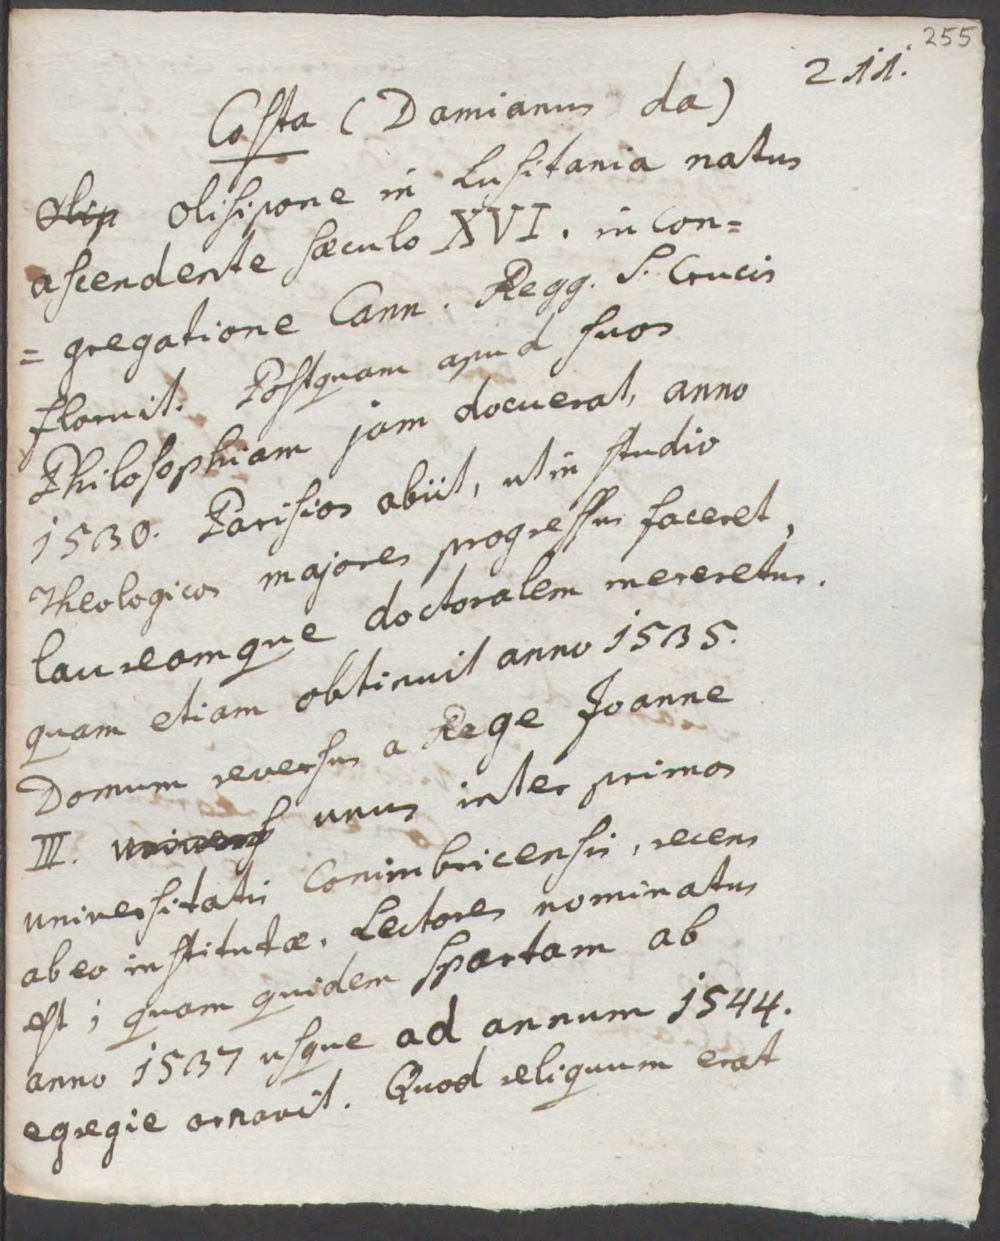 255
211.
Costa (Damianus da)
Olip Olisipone in Lusitania natus
ascendente sæculo XVI. in Con=
=gregatione Cann. Regg. S. Crucis
floruit. Postquam apud suos
Philosophiam jam docuerat, anno
1530. Parisios abiit, ut in studio
Theologicos majores progressus faceret,
laureamque doctoralem mereretur.
quam etiam obtinuit anno 1535.
Domum reversus a Rege Joanne
III. univers unus inter primos
universitatis Conimbricensis, recens
ab eo institutæ, Lectores nominatus
est; quam quidem spartam ab
anno 1537 usque ad annum 1544.
egregie ornavit. Quod reliquum erat